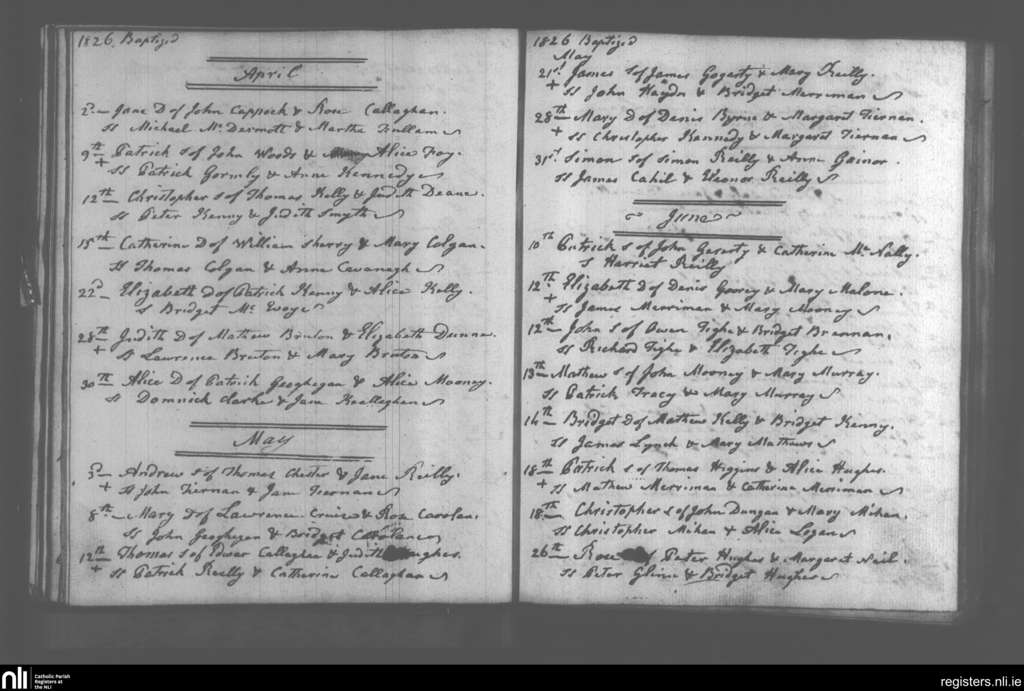 1826. Baptized
April
2d Jane D of John Cappock & Rose Callaghan.
Ss Michael Mc Dermott & Martha
9th Patrick S of John Woods & Alice Foy.
+ Ss Patrick Gormly & Anne Kennedy
12th Christopher S of Thomas Kelly & Judith Deane.
Ss Peter Kenny & Judith Smyth
15th Catherine D of William Sherry & Mary Colgan.
Ss Thomas Colgan & Anne Cavanagh
22d Elizabeth D of Patrick Kenny & Alice Kelly.
S Bridget Mc Evoye
28th Judith D of Mathew Bruton & Elizabeth Dunne.
+ Ss Lawrence Bruton & Mary Bruton
30th Alice D of Patrick Geoghegan & Alice Mooney.
Ss Domnick Clarke & Jane
May
5d Andrew S of Thomas Chester & Jane Reilly.
+ Ss John Tiernan & Jane Tiernan
8th Mary D of Lawrence Cruise & Rose Carolan.
Ss John Geoghegan & Bridget Carolan
12th Thomas S of Callaghan & Judith
+ Ss Patrick Reilly & Catherine Callaghan
1826 Baptized
May
21st James S of James Gogarty & Mary Reilly.
+ Ss John Haydn & Bridget Merriman
28th Mary D of Denis Byrne & Margaret Tiernan.
+ Ss Christopher Kennedy & Margaret Tiernan
31st Simon S of Simon Reilly & Anne Gainor.
Ss James Cahil & Eleonor Reilly
June
10th Patrick S of John Geraty & Catherine Mc Nally.
S Harriet Reilly
12th Elizabeth D of Denis & Mary Malone.
+ Ss James Merriman & Mary Mooney
12th John S of Owen Tighe & Bridget Brennan.
Ss Richard Tighe & Elizabeth Tighe
13th Mathew S of John Mooney & Mary Murray.
Ss Patrick Tracy & Mary Murray
14th Bridget D of Mathew Kelly & Bridget Kenny.
Ss James Lynch & Mary Mathews
18th Patrick S of Thomas Higgins & Alice Hughes.
+ Ss Mathew Merriman & Catherine Merriman
18th Christopher S of John Dungan & Mary Mihan.
Ss Christopher Mihan & Alice Logan
26th Rose of Peter Hughes & Margaret Neil.
Ss Peter Glinn & Bridget Hughes
nli
Catholic Parish
Registers at
the NLI
registers.nli.ie